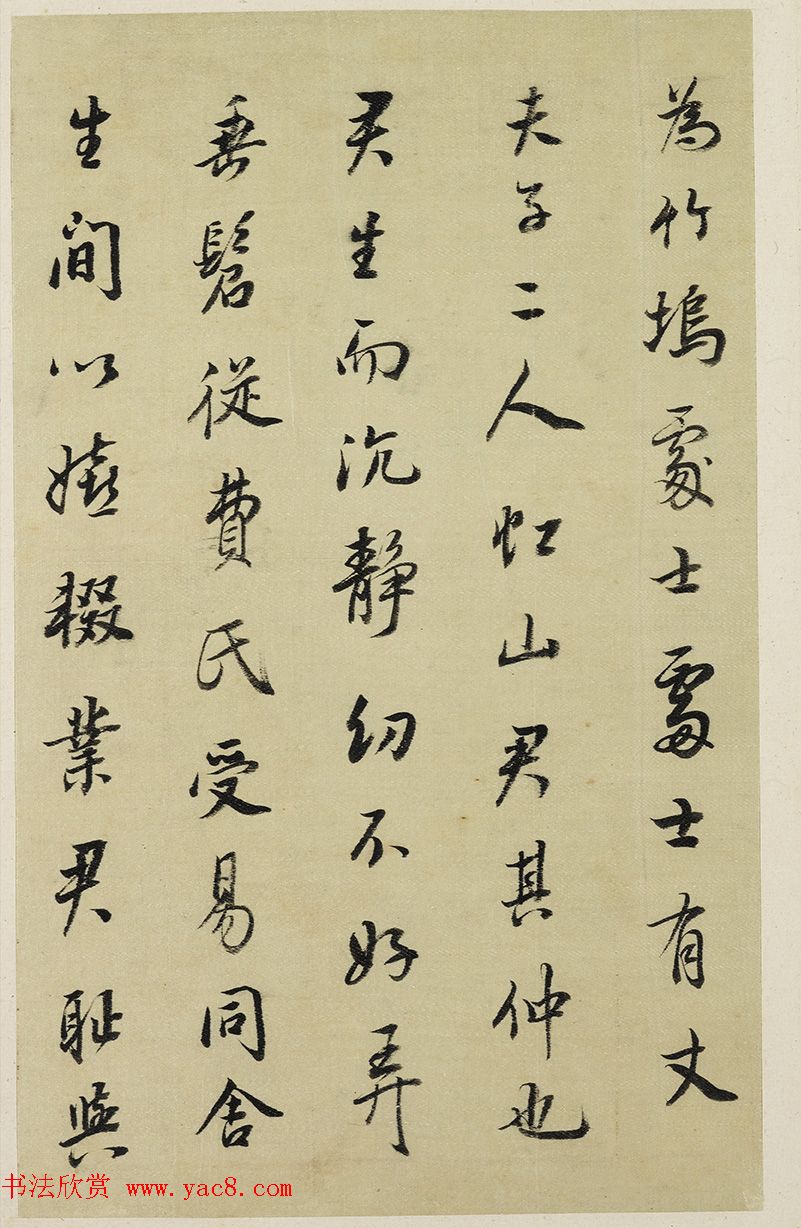 為竹塢處士處士有丈
夫子二人虹山君其仲也
君生而沉靜幼不好弄
垂髫從費氏受易同舍
生間以嬉輟業君恥與
书法欣赏 www.yac8.com